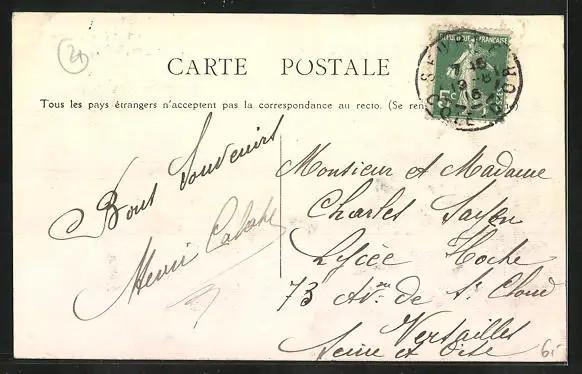 24
RÉPUBLIQUE FRANÇAISE
5c
CARTE POSTALE
Tous les pays étrangers n'acceptent pas la correspondance au recto. (Se ren
Bons Souvenirs
Henri
Monsieur et Madame
Charles
Lycée Hoche
73 Av.ue de St Cloud
Versailles
Seine et Oise